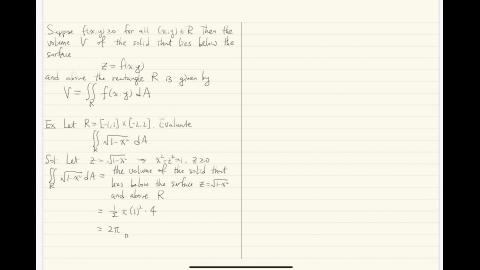 Suppose f(x,y)≥0 for all (x,y)∈R. Then the
volume V of the solid that lies below the
surface
z = f(x,y)
and above the rectangle R is given by
V = ∬_R f(x,y) dA
Ex. Let R = [-1,1] × [-2,2]. Evaluate
∬_R √(1-x²) dA
Sol: Let z = √(1-x²) → x²+z²=1, z≥0
∬_R √(1-x²) dA = the volume of the solid that
lies below the surface z=√(1-x²)
and above R
= 1/2 π(1)² · 4
= 2π □